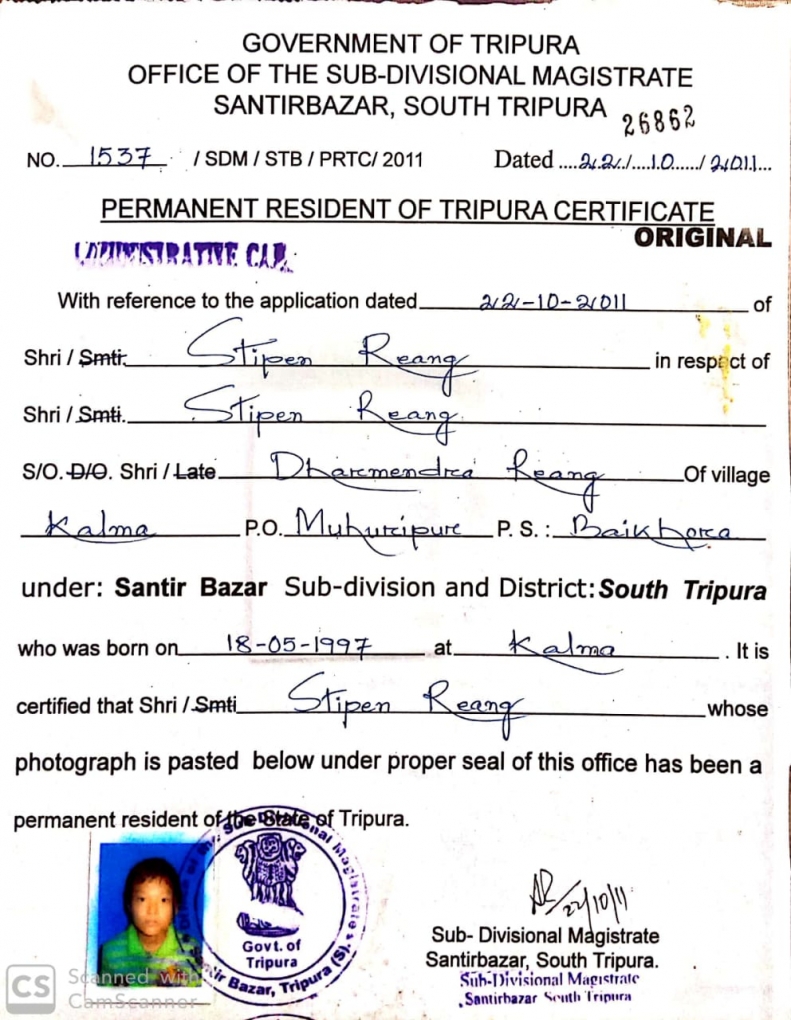 GOVERNMENT OF TRIPURA
OFFICE OF THE SUB-DIVISIONAL MAGISTRATE
SANTIRBAZAR, SOUTH TRIPURA 26862
NO. 1537 / SDM / STB / PRTC/ 2011 Dated ....22./....10...../ 2011...
PERMANENT RESIDENT OF TRIPURA CERTIFICATE
ORIGINAL
With reference to the application dated 22-10-2011 of
Shri / Smti. Stipen Reang in respect of
Shri / Smti. Stipen Reang
S/O. D/O. Shri / Late Dharmendra Reang Of village
Kalma P.O. Muhuripur P. S. : Baikhora
under: Santir Bazar Sub-division and District: South Tripura
who was born on 18-05-1997 at Kalma . It is
certified that Shri / Smti Stipen Reang whose
photograph is pasted below under proper seal of this office has been a
permanent resident of the State of Tripura.
Govt. of
Tripura
Bazar, Tripura (S).
22/10/11
Sub- Divisional Magistrate
Santirbazar, South Tripura.
Sub-Divisional Magistrate
Santirbazar South Tripura
CS Scanned with
CamScanner